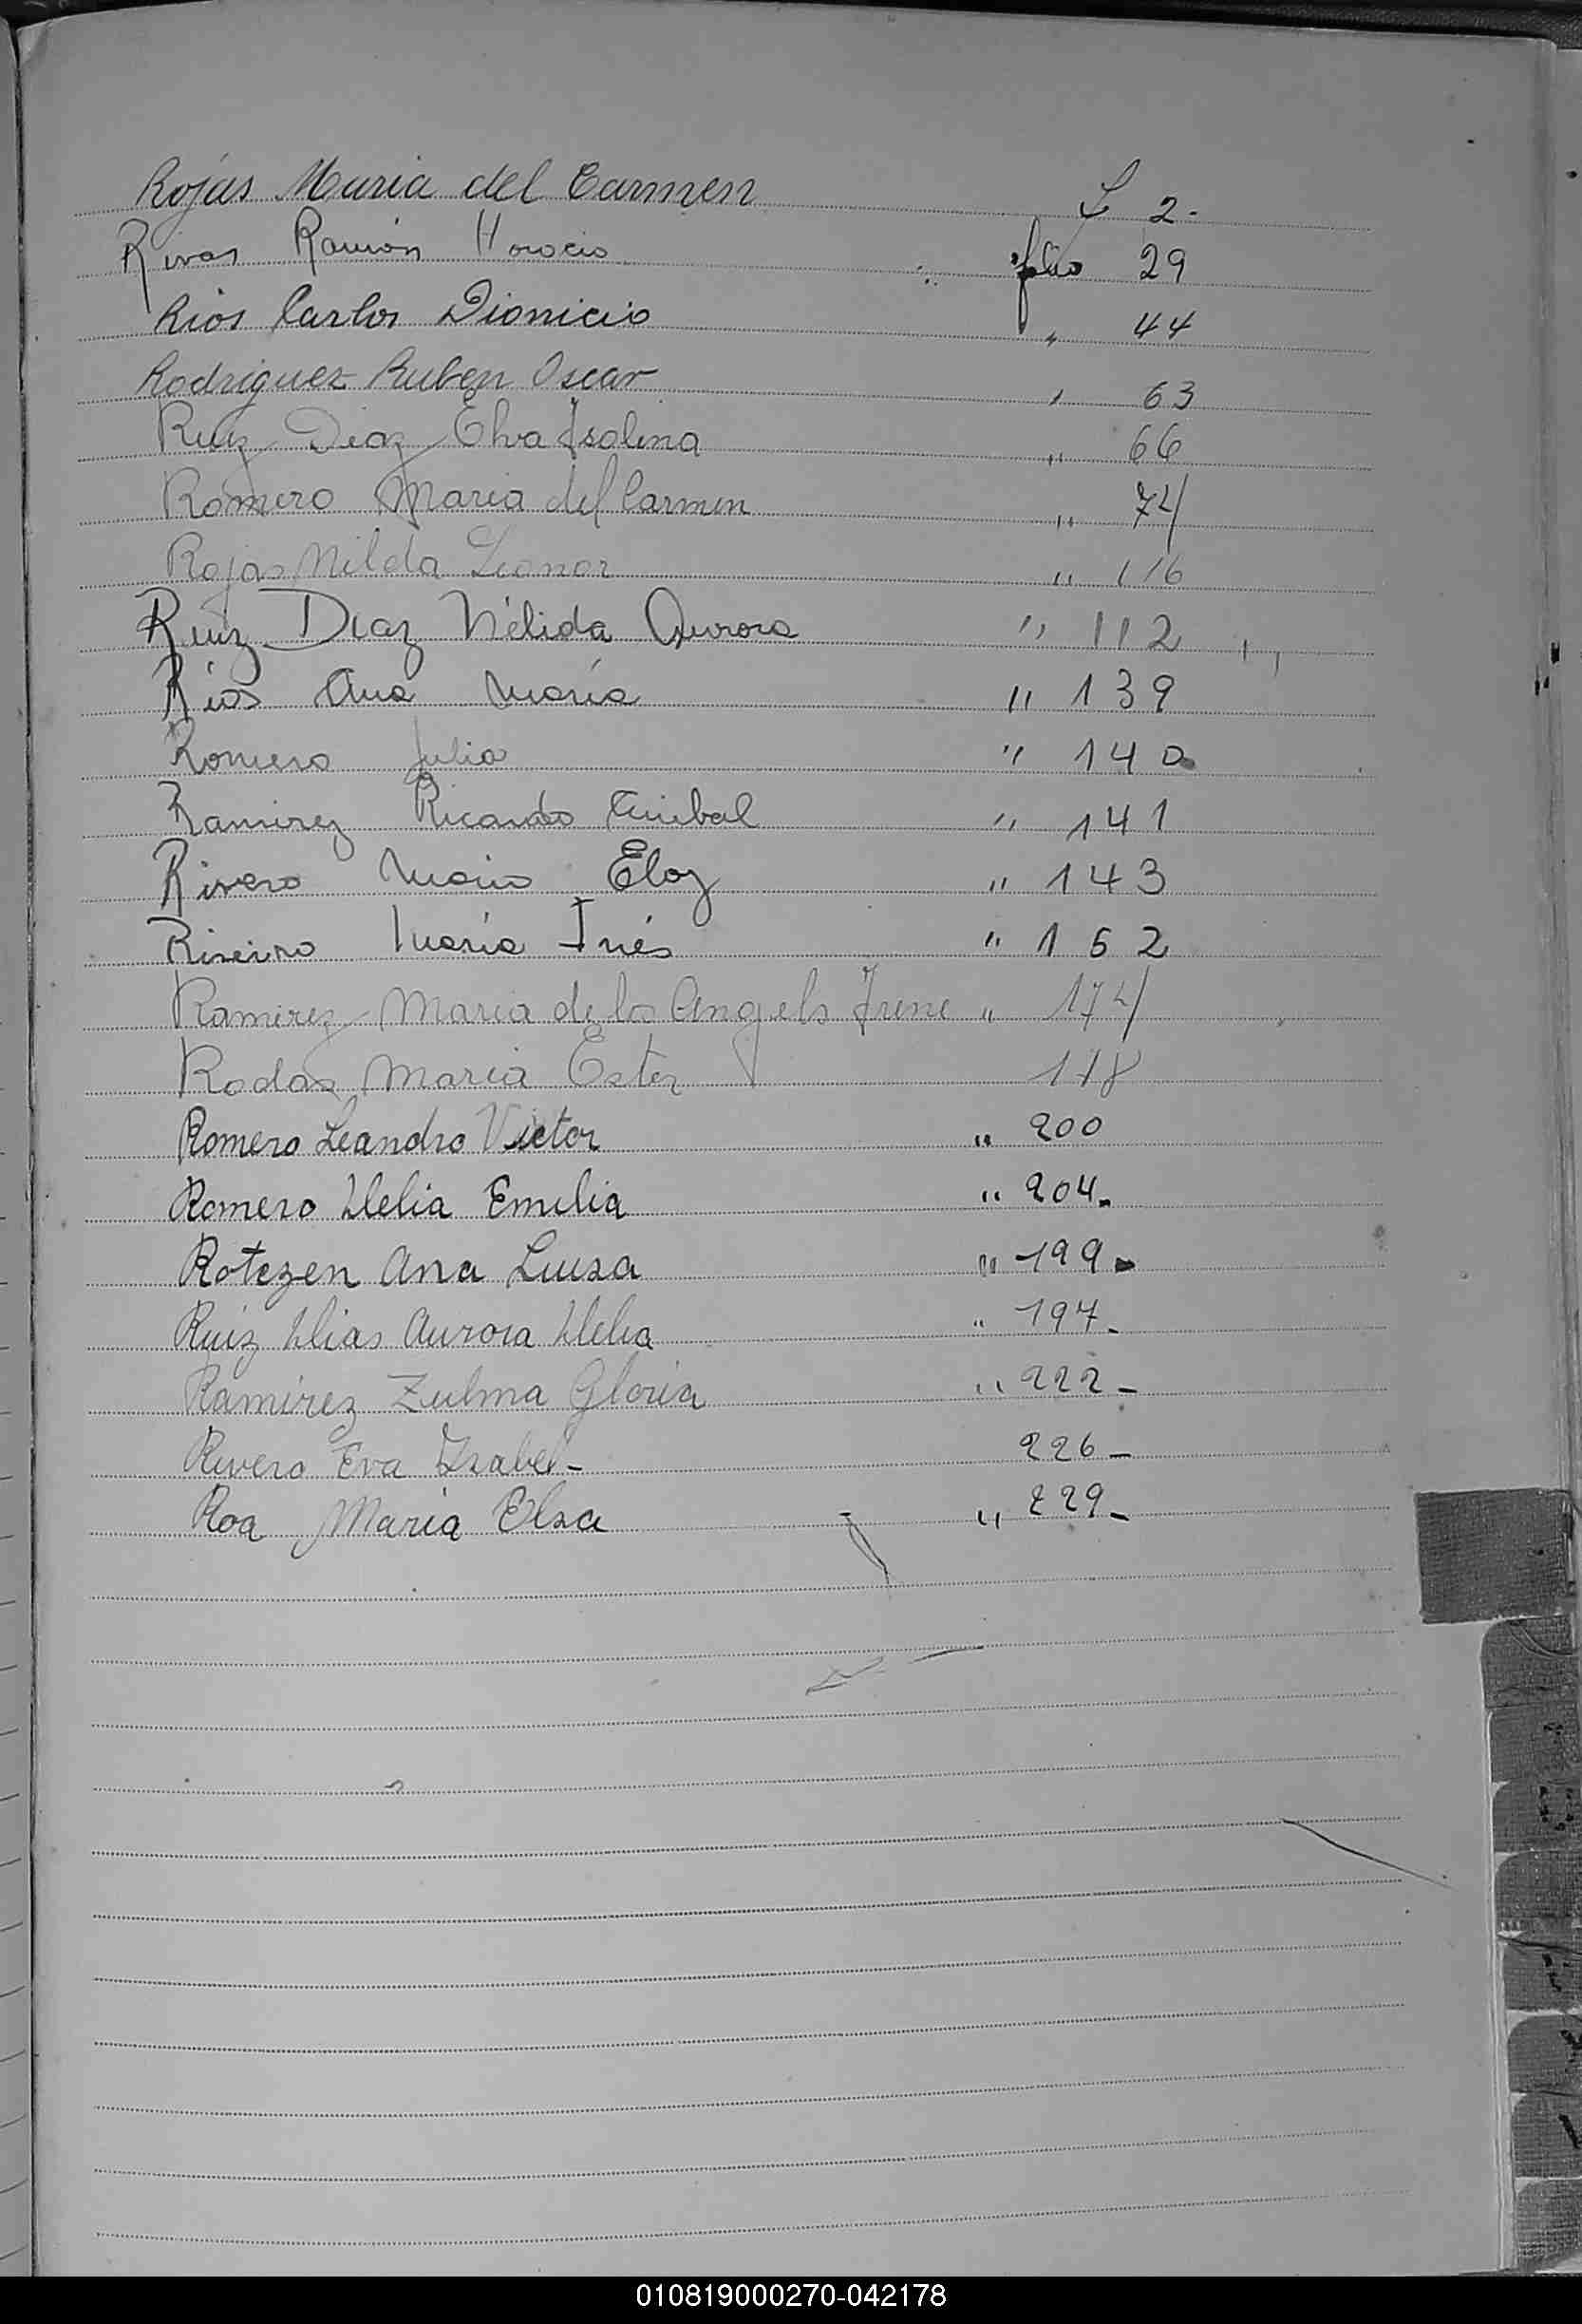 Rojas Maria del Carmen f 2-
Rivas Ramón Horacio folio 29
Rios Carlos Dionicio " 44
Rodriguez Ruben Oscar " 63
Ruiz Diaz Elva Isolina " 66
Romero Maria del Carmen " 74
Rojas Nilda Leonor " 116
Ruiz Diaz Nélida Aurora " 112
Ríos Ana María " 139
Romero Julio " 140
Ramirez Ricardo Anibal " 141
Rivero Mario Eloy " 143
Riveiro María Inés " 152
Ramirez Maria de los Angels Irene " 174
Rodas Maria Ester 178
Romero Leandro Victor " 200
Romero Delia Emilia " 204-
Rotezen Ana Luisa " 199-
Ruiz Dias Aurora Delia " 197-
Ramirez Zulma Gloria " 222-
Rivero Eva Isabel- 226-
Roa Maria Elsa " 229-
010819000270-042178